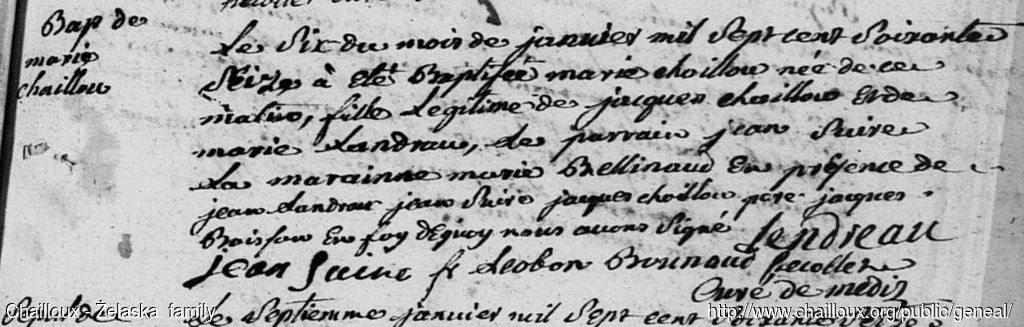 Bap de
marie
chaillou
Le Six du mois de janvier mil Sept cent Soixante
Seize à eté Baptisée marie chaillou née de ce
matin, fille Legitime de jacques chaillou et de
marie Landrau, Le parrain jean Suire
La marainne marie Bellinaud En présence de
jean Landrau jean Suire jacques chaillou pere jacques
Boisson En foy dequoy nous avons Signé Lendreau
jean Suire f Leobon Bounaud Recollet
Curé de medis
Sepul de
Le Septiemme janvier mil Sept cent Soixante
Chailloux - Żelaska family
http://www.chailloux.org/public/geneal/